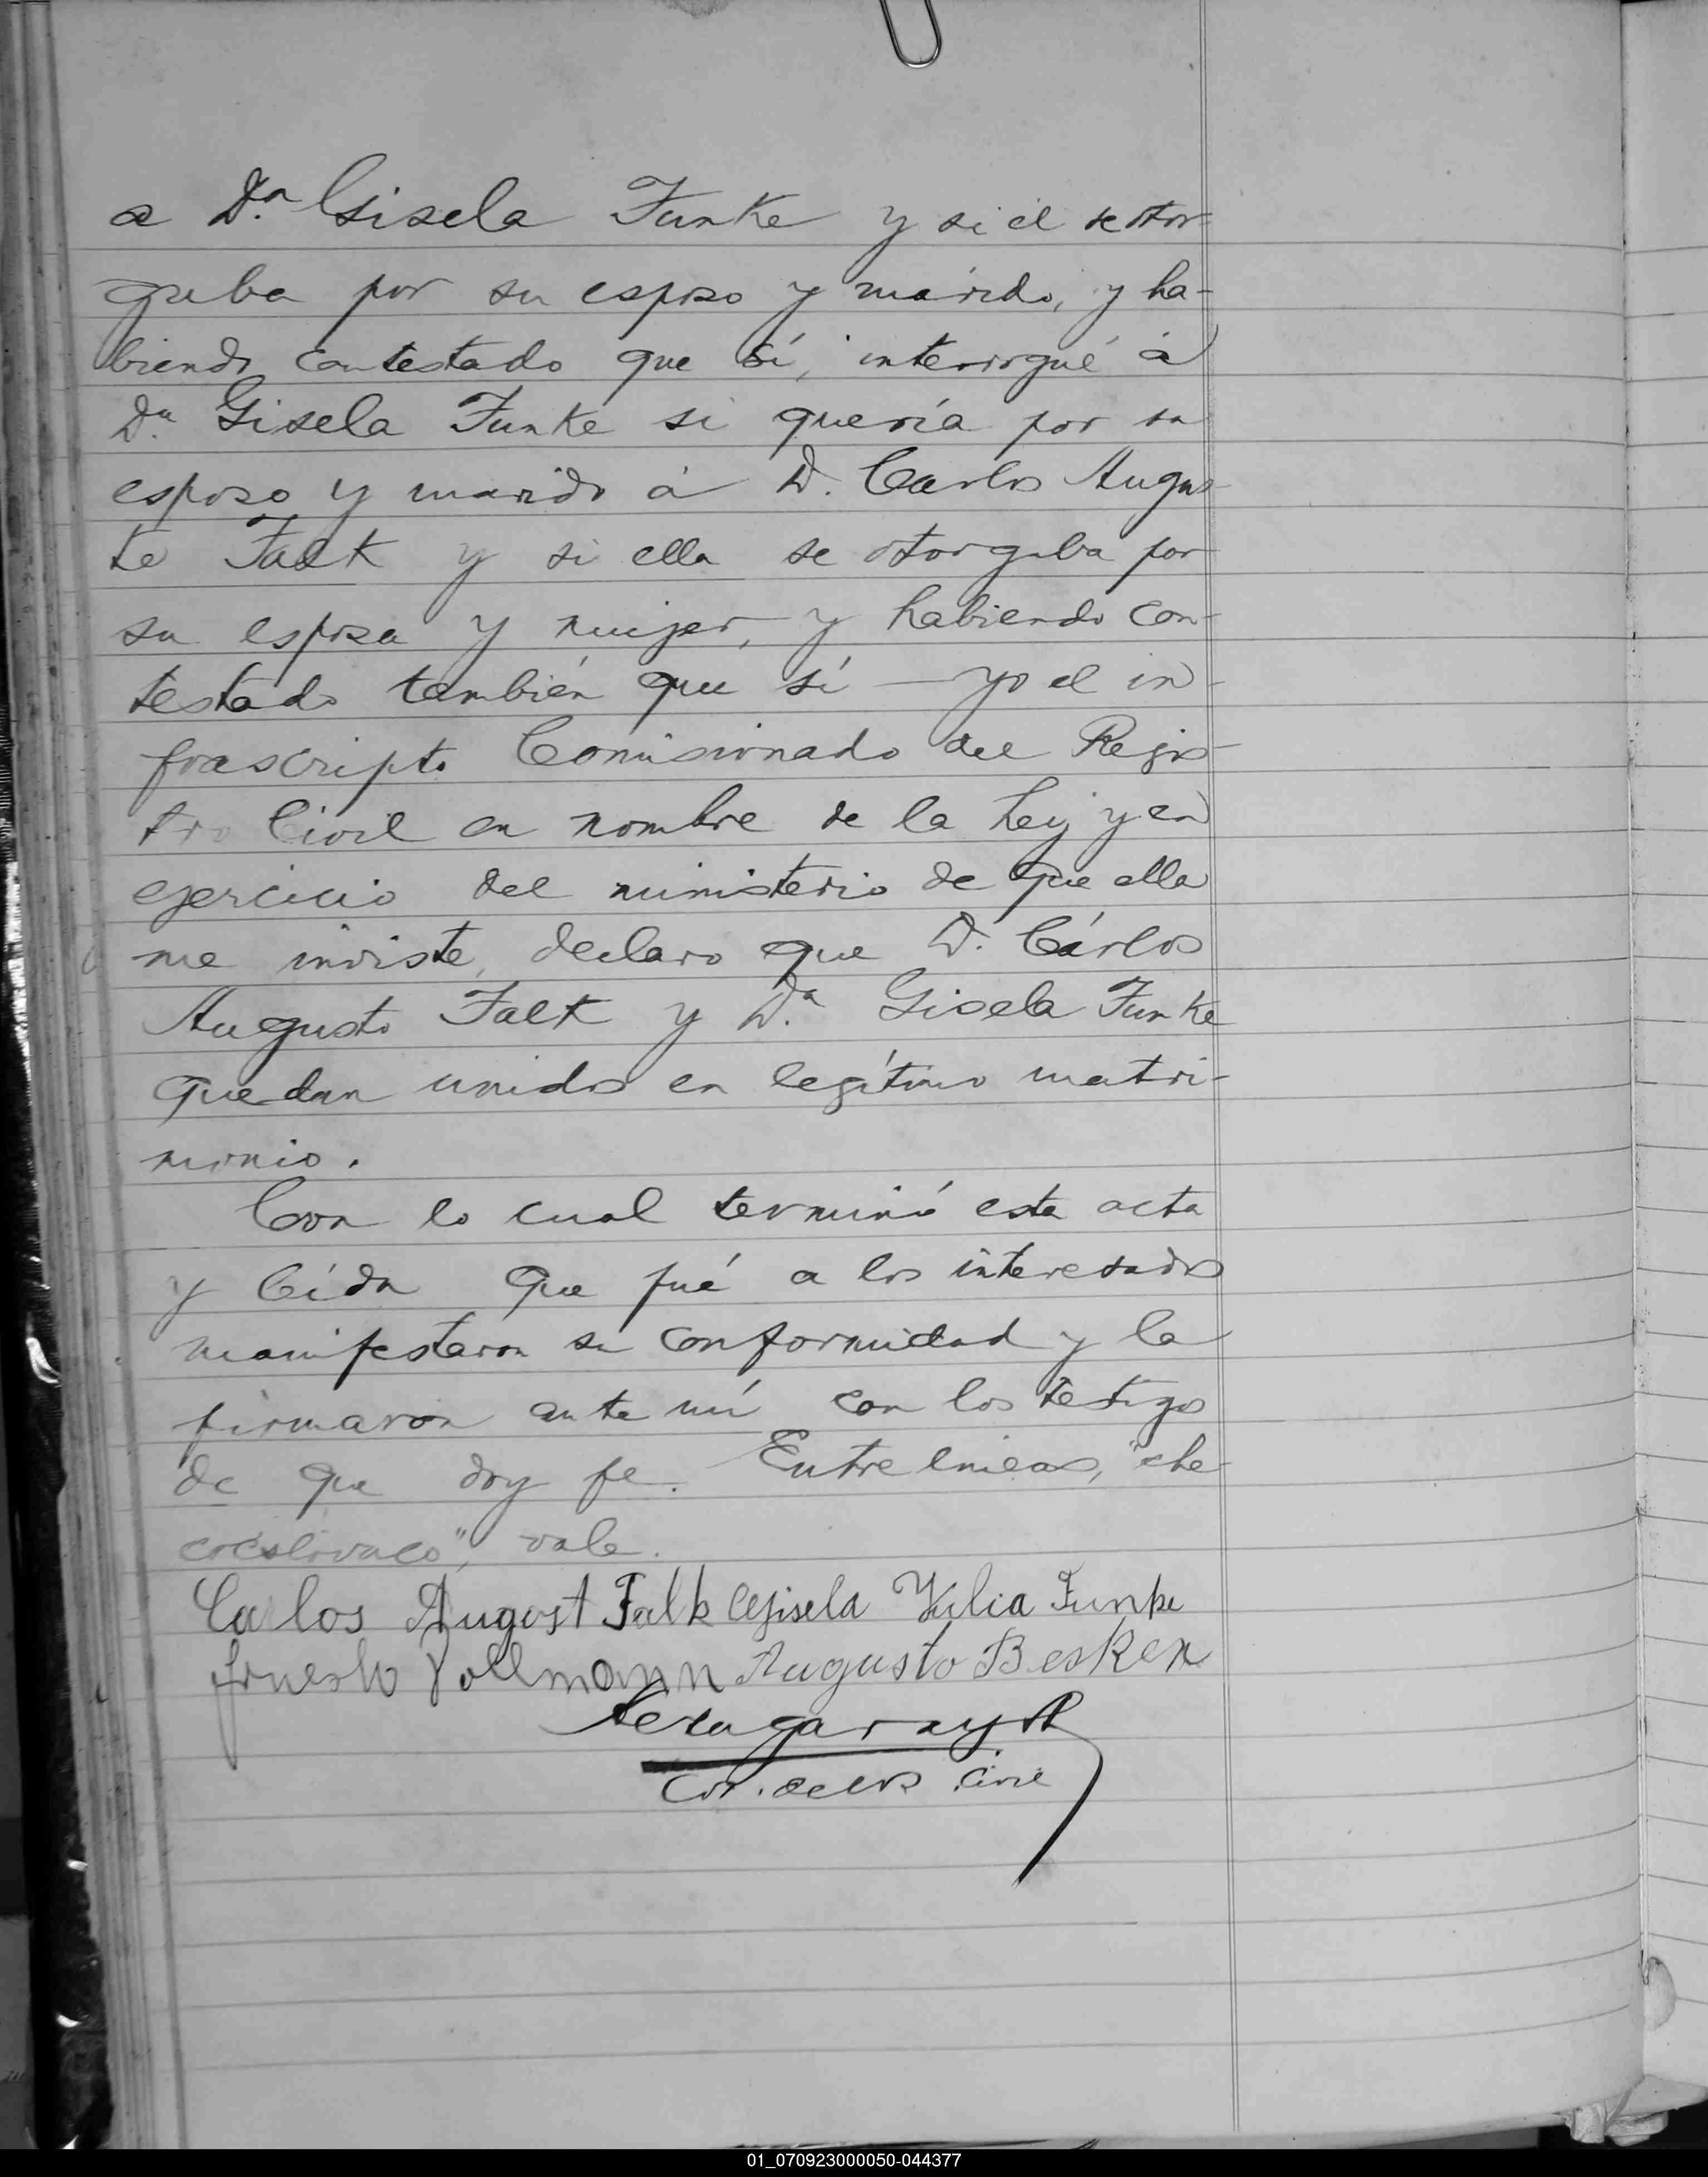 a D.ª Gisela Funke y si él se otor-
gaba por su esposo y marido, y ha-
biendo contestado que sí, interrogué á
D.ª Gisela Funke si quería por su
esposo y marido á D. Carlos Augus-
to Falk y si ella se otorgaba por
su esposa y mujer, y habiendo con-
testado también que sí — yo el in-
frascripto Comisionado del Regis-
tro Civil en nombre de la Ley y en
ejercicio del ministerio de que ella
me inviste, declaro que D. Cárlos
Augusto Falk y D.ª Gisela Funke
quedan unidos en legítimo matri-
monio.
Con lo cual terminó esta acta
y leída que fué a los interesados
manifestaron su conformidad y la
firmaron ante mí con los testigos
de que doy fe. Entre lineas, "che
coeslovaco", vale.
Carlos August Falk Gisela Yulia Funke
Ernesto Vollmann Augusto Besken